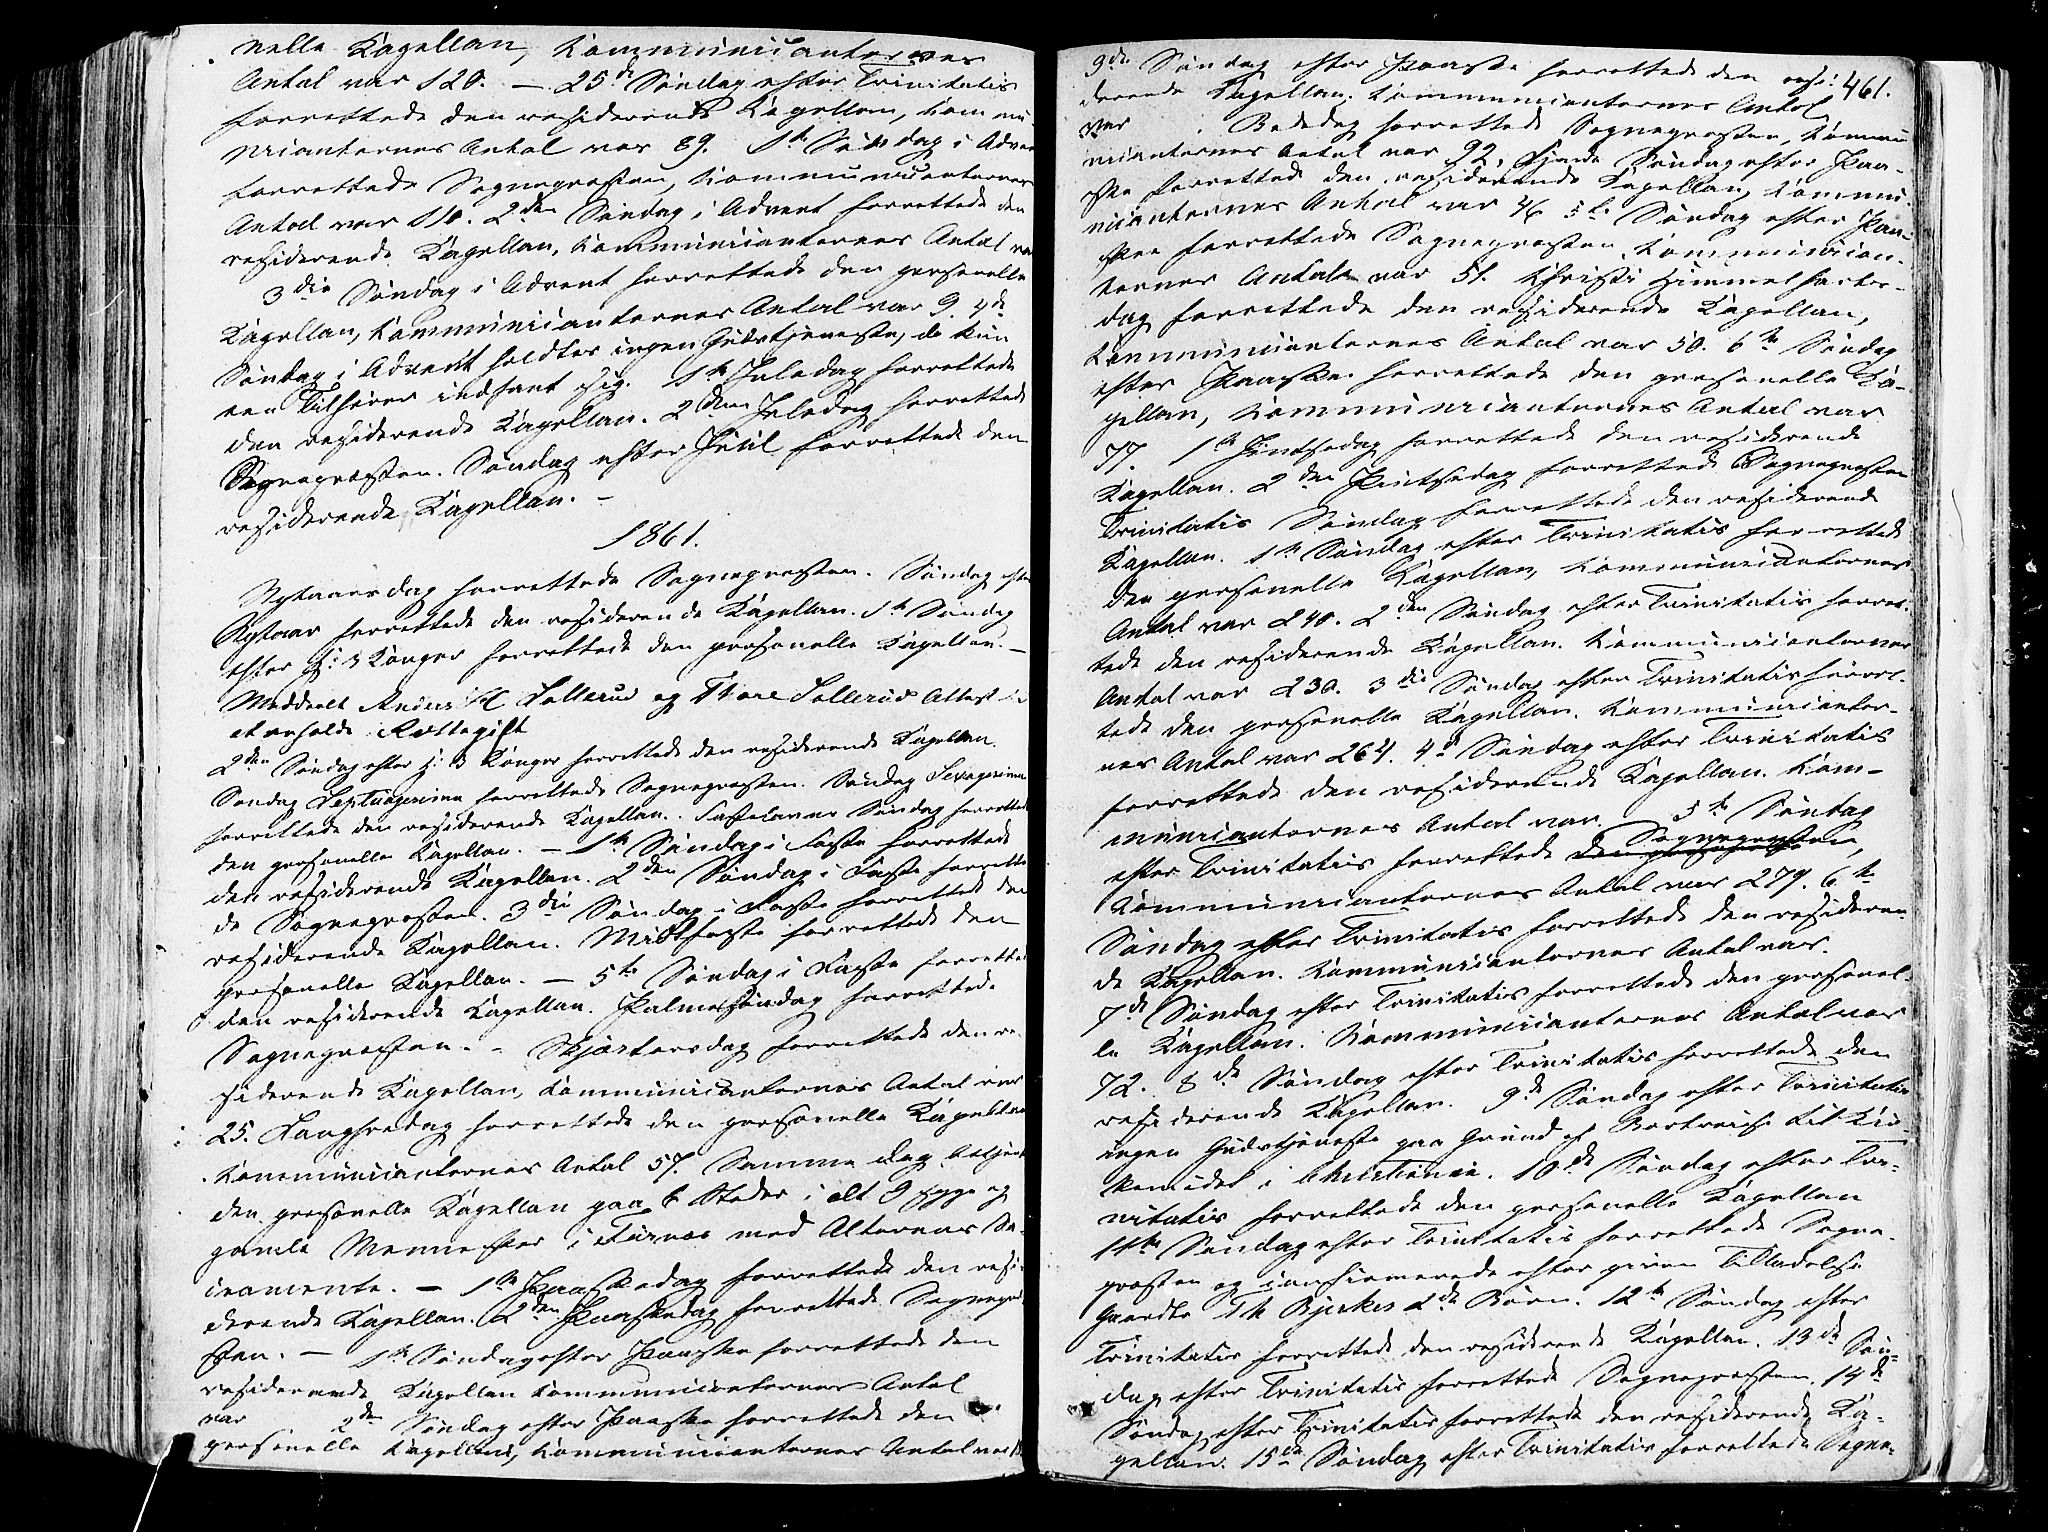 nelle Kapellan, Kommunicanternes
Antal var 120. — 25de Søndag efter Trinitatis
forrettede den residerende Kapellan, Kommu-
nicanternes Antal var 89. 1ste Søndag i Advent
forrettede Sognepræsten, Kommunicanternes
Antal var 110. 2den Søndag i Advent forrettede den
residerende Kapellan, Kommunicanternes Antal var
3die Søndag i Advent forrettede den personelle
Kapellan, Kommunicanternes Antal var 9. 4de
Søndag i Advent holdtes ingen Gudstjeneste, da kun
een Tilhører indfant sig. 1ste Juledag forrettede
den residerende Kapellan. 2den Juledag forrettede
Sognepræsten. Søndag efter Juul forrettede den
residerende Kapellan. —
1861.
Nytaarsdag forrettede Sognepræsten. Søndag efter
Nytaar forrettede den residerende Kapellan. 1ste Søndag
efter H: 3 Konger forrettede den personelle Kapellan. —
Meddeelt Anders H Sollerud og Thore Sollerud Attest
at erholde Rottegift
2den Søndag efter H: 3 Konger forrettede den residerende Kapellan.
Søndag Septuagesima forrettede Sognepræsten. Søndag Sexagesima
forrettede den residerende Kapellan. Fastelavns Søndag forrettede
den personelle Kapellan. — 1ste Søndag i Faste forrettede
den residerende Kapellan. 2den Søndag i Faste forrette-
de Sognepræsten. 3die Søndag i Faste forrettede den
residerende Kapellan. Midtfaste forrettede den
personelle Kapellan. — 5te Søndag i Faste forrettede
den residerende Kapellan. Palmesøndag forrettede
Sognepræsten. — Skjærtorsdag forrettede den re-
siderende Kapellan, Kommunicanternes Antal var
25. Langfredag forrettede den personelle Kapellan
Kommunicanternes Antal 57. Samme Dag betjente
den personelle Kapellan paa 6 Steder i alt 9 syge og
gamle Mennesker i Furnes med Alterens Sa-
cramente. — 1ste Paaskedag forrettede den resi-
derende Kapellan. 2den Paaskedag forrettede Sognepræ-
sten. — 1ste Søndag efter Paaske forrettede den
residerende Kapellan Kommunicanternes Antal
var 2den Søndag efter Paaske forrettede den
personelle Kapellan, Kommunicanternes Antal var
461.
3die Søndag efter Paaske forrettede den resi-
derende Kapellan. Kommunicanternes Antal
var . Bededag forrettede Sognepræsten, Kommu-
nicanternes Antal var 92. Fjerde Søndag efter Paa-
ske forrettede den residerende Kapellan, Kommu-
nicanternes Antal var 46 5te Søndag efter Paa-
ske forrettede Sognepræsten Kommunican-
ternes Antal var 51. Christi Himmelfarts-
dag forrettede den residerende Kapellan,
Kommunicanternes Antal var 50. 6te Søndag
efter Paaske forrettede den personelle Ka-
pellan, Kommunicanternes Antal var
77. 1ste Pintsedag forrettede den residerende
Kapellan. 2den Pintsedag forrettede Sognepræsten
Trinitatis Søndag forrettede den residerende
Kapellan. 1ste Søndag efter Trinitatis forrettede
den personelle Kapellan, Kommunicanternes
Antal var 240. 2den Søndag efter Trinitatis forret-
tede den residerende Kapellan. Kommunicanternes
Antal var 230. 3die Søndag efter Trinitatis forret-
tede den personelle Kapellan. Kommunicanter-
nes Antal var 264. 4de Søndag efter Trinitatis
forrettede den residerende Kapellan. Kom-
municanternes Antal var 5te Søndag
efter Trinitatis forrettede Sognepræsten,
Kommunicanternes Antal var 279. 6te
Søndag efter Trinitatis forrettede den resideren-
de Kapellan. Kommunicanternes Antal var.
7de Søndag efter Trinitatis forrettede den personel-
le Kapellan. Kommunicanternes Antal var
72. 8de Søndag efter Trinitatis forrettede den
residerende Kapellan. 9de Søndag efter Trinitatis
ingen Gudstjeneste paa Grund af Bortreise til Kir-
kemødet i Christiania. 10de Søndag efter Tri-
nitatis forrettede den personelle Kapellan
11te Søndag efter Trinitatis forrettede Sogne-
præsten og confirmerede efter given Tilladelse
Gaardbr Th Bjerkes 2de Børn. 12te Søndag efter
Trinitatis forrettede den residerende Kapellan. 13de Søn-
dag efter Trinitatis forrettede Sognepræsten. 14de
Søndag efter Trinitatis forrettede den residerende Ka-
pellan. 15de Søndag efter Trinitatis forrettede Sogne-